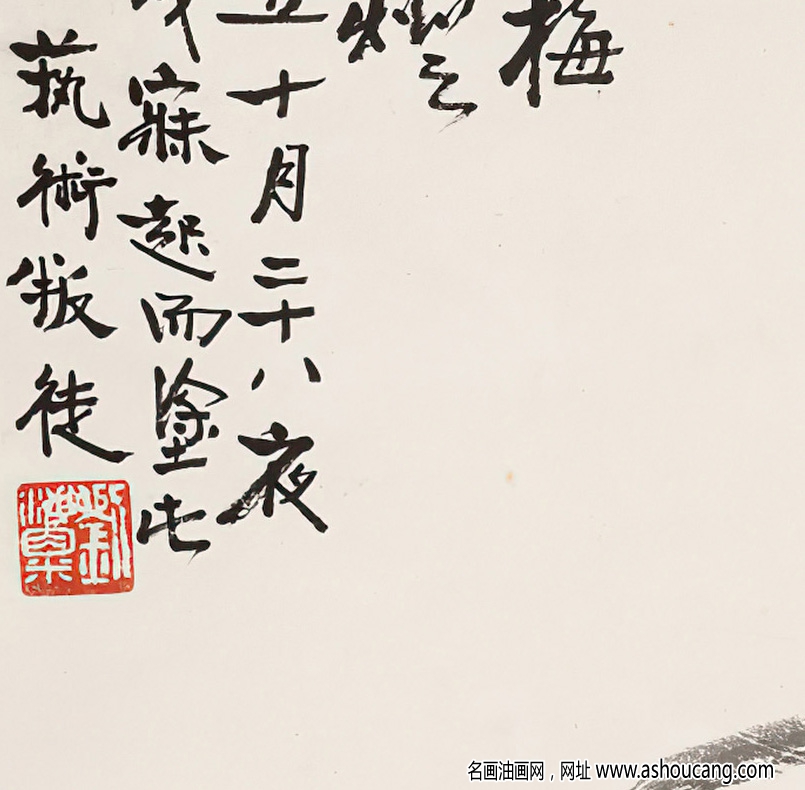 梅
之
十月二十八夜
寐起而塗此
藝術叛徒
劉海粟
名画油画网，网址 www.ashoucang.com